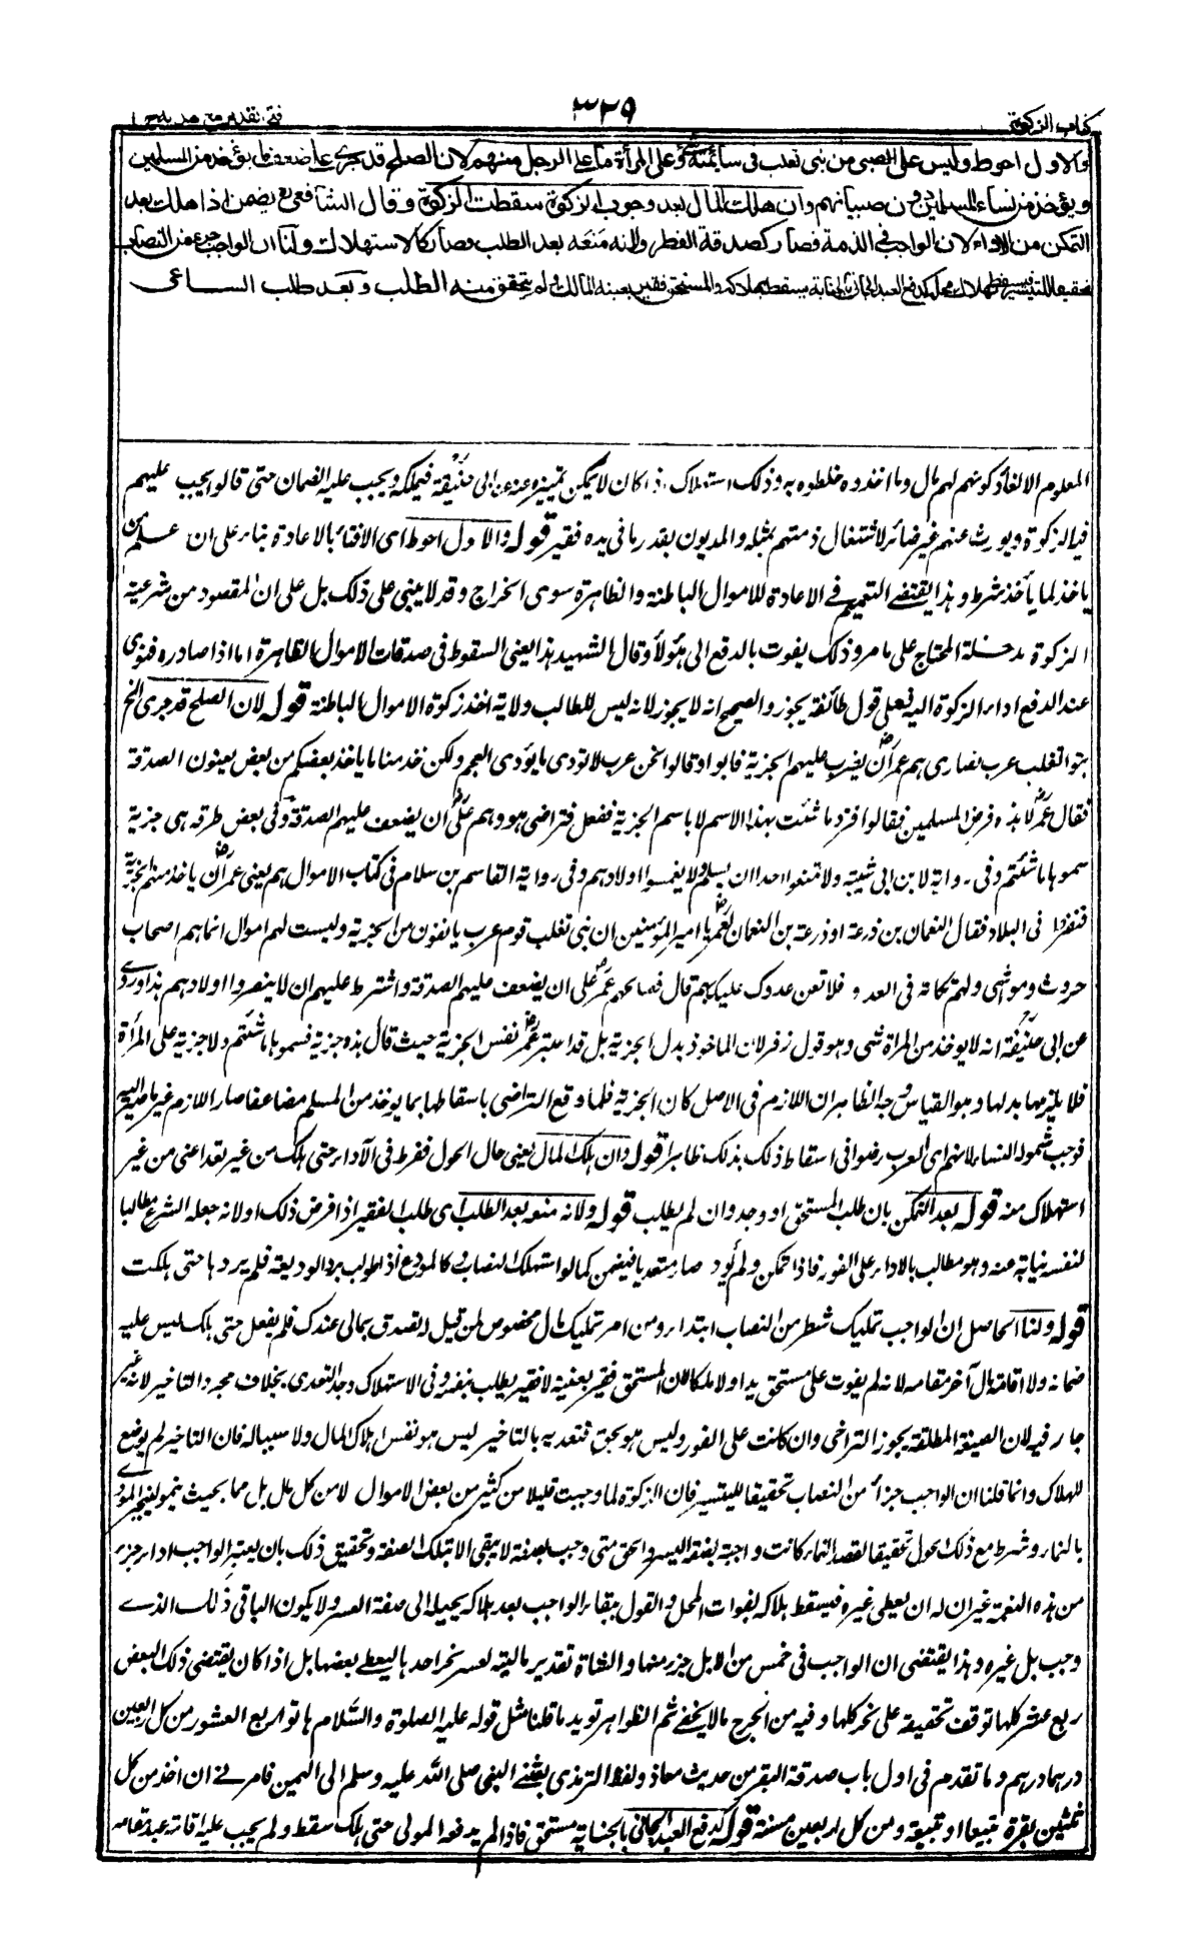 كتاب الزكوة
٣٢٩
فتح القدير مع هدايه ج ١
والاول احوط وليس على الصبى من بنى تغلب فى سائمته شئ وعلى المرأة ما على الرجل منهم لان الصلح قد جرى على ضعف ما يؤخذ من المسلمين
ويؤخذ من نساء المسلمين دون صبيانهم وان هلك المال بعد وجوب الزكوة سقطت الزكوة وقال الشافعى يضمن اذا هلك بعد
التمكن من الاداء لان الواجب فى الذمة فصار كصدقة الفطر ولانه منعه بعد الطلب فصار كالاستهلاك ولنا ان الواجب جزء من النصاب
تحقيقا للتيسير فيسقط بهلاك محله كدفع العبد الجانى بالجناية يسقط بهلاكه والمستحق فقير يعينه المالك ولم يتحقق منه الطلب وبعد طلب الساعى
المعلوم الالغاء كونهم لهم مال وما اخذوه خلطوه به وذلك استهلاك اذا كان لا يمكن تمييزه عنه عند ابى حنيفة فيملكه ويجب عليه الضمان حتى قالوا يجب عليهم
فيه الزكوة ويورث عنهم غير ضائر لاشتغال ذمتهم بمثله والمديون بقدر ما فى يده فقير قوله والاول احوط اى الافتاء بالاعادة بناء على ان علم من
ياخذ لما يأخذ شرط وهذا يقتضى التعميم فى الاعادة للاموال الباطنة والظاهرة سوى الخراج وقد لا يبنى على ذلك بل على ان المقصود من شرعية
الزكوة سد خلة المحتاج على ما مر وذلك يفوت بالدفع الى هؤلاء وقال الشهيد هذا يعنى السقوط فى صدقات الاموال الظاهرة اما اذا صادره فنوى
عند الدفع اداء الزكوة اليه فعلى قول طائفة يجوز والصحيح انه لا يجوز لانه ليس للطالب ولاية اخذ زكوة الاموال الباطنة قوله لان الصلح قد جرى الخ
بنو تغلب عرب نصارى هم عمر رض ان يضرب عليهم الجزية فابوا وقالوا نحن عرب لا نودى ما يؤدى العجم ولكن خذ منا ما ياخذ بعضكم من بعض يعنون الصدقة
فقال عمر رض لا هذه فرض المسلمين فقالوا فزد ما شئت بهذا الاسم لا باسم الجزية ففعل فتراضى هو وهم على ان يضعف عليهم الصدقة وفى بعض طرقه هى جزية
سموها ما شئتم وفى رواية لابن ابى شيبة ولا تمنعوا احدا ان يسلم ولا يغمسوا اولادهم وفى رواية القاسم بن سلام فى كتاب الاموال هم يعنى عمر رض ان ياخذ منهم الجزية
فتفرقوا فى البلاد فقال النعمان بن زرعة او زرعة بن النعمان لعمر رض يا امير المؤمنين ان بنى تغلب قوم عرب يانفون من الجزية وليست لهم اموال انما هم اصحاب
حروث ومواشى ولهم نكاية فى العدو فلا تعن عدوك عليك بهم قال فصالحهم عمر رض على ان يضعف عليهم الصدقة واشترط عليهم ان لا ينصروا اولادهم هذا وروى
عن ابى حنيفة انه لا يوخذ من المراة شئ وهو قول زفر لان الماخوذ بدل الجزية بل قد اعتبر عمر رض نفس الجزية حيث قال هذه جزية فسموها ما شئتم ولا جزية على المرأة
فلا يلزمها بدلها وهو القياس وجه الظاهر ان اللازم فى الاصل كان الجزية فلما وقع التراضى باسقاطها بما يوخذ من المسلم مضاعفا صار اللازم غير ما صير اليه
فوجب شموله النساء لانهم اى العرب رضوا فى اسقاط ذلك بذلك ظاهرا قوله وان هلك المال يعنى حال الحول ففرط فى الاداء حتى هلك من غير تعد اعنى من غير
استهلاك منه قوله بعد التمكن بان طلب المستحق او وجد وان لم يطلب قوله ولانه منعه بعد الطلب اى طلب الفقير اذا فرض ذلك او لانه جعله الشرع مطالبا
لنفسه نيابة عنه وهو مطالب بالاداء على الفور فاذا تمكن ولم يؤد صار متعديا فيضمن كما لو استهلك النصاب وكالمودع اذا طولب برد الوديعة فلم يردها حتى هلكت
قوله ولنا الحاصل ان الواجب تمليك شطر من النصاب ابتداء ومن امر بتمليك مال مخصوص لمن قيل له تصدق بمالى عندك فلم يفعل حتى هلك ليس عليه
ضمانه ولا اقامة مال آخر مقامه لانه لم يفوت على مستحق يدا ولا ملكا لان المستحق فقير يعينه لا فقير يطلب بنفسه وفى الاستهلاك وجد التعدى بخلاف مجرد التاخير لانه غير
جار فيه لان الصيغة المطلقة يجوز التراخى وان كانت على الفور وليس هو بحق فتعديه بالتاخير ليس هو نفس اهلاك المال ولا سببا له فان التاخير لم يوضع
للهلاك وانما قلنا ان الواجب جزء من النصاب تحقيقا للتيسير فان الزكوة لما وجبت قليلا من كثير من بعض الاموال لا من كل مال بل مما بحيث ينمو لينجبر المودى
بالنماء وشرط مع ذلك الحول تحقيقا لقصد النماء كانت واجبة بصفة اليسر والحق متى وجب بصفة لا يبقى الا بتلك الصفة وتحقيق ذلك بان يعتبر الواجب اداء جزء
من هذه النعمة غير ان له ان يعطى غيره فيسقط بهلاكه لفوات المحل والقول ببقاء الواجب بعد هلاكه يحيله الى صفة العسر ولا يكون الباقى ذلك الذى
وجب بل غيره وهذا يقتضى ان الواجب فى خمس من الابل جزء منها والشاة تقدير ماليته لعسر نحر احدها ليعطى بعضها بل اذا كان يقتضى ذلك البعض
ربع عشر كلها توقف تحقيقه على نحر كلها وفيه من الحرج ما لا يخفى ثم الظواهر تويد ما قلنا مثل قوله عليه الصلوة والسلام هاتوا ربع العشور من كل اربعين
درهما درهم وما تقدم فى اول باب صدقة البقر من حديث معاذ ولفظ الترمذى بعثنى النبى صلى الله عليه وسلم الى اليمن فامرنى ان اخذ من كل
ثلثين بقرة تبيعا او تبيعة ومن كل اربعين مسنة قوله كدفع العبد الجانى بالجناية مستحق فاذا لم يدفعه المولى حتى هلك سقط ولم يجب عليه اقامة عبد مقامه